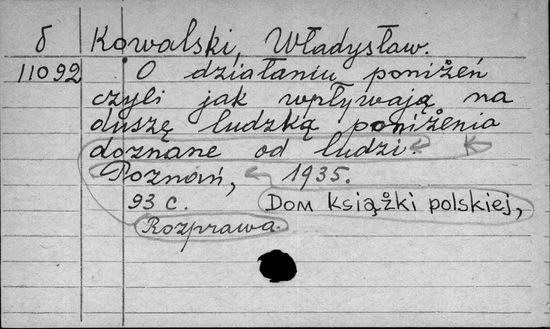 б Kowalski, Władysław.
11092 O działaniu poniżeń
czyli jak wpływają na
duszę ludzką poniżenia
doznane od ludzi.
Poznań, 1935.
93 c. Dom Książki polskiej,
Rozprawa.